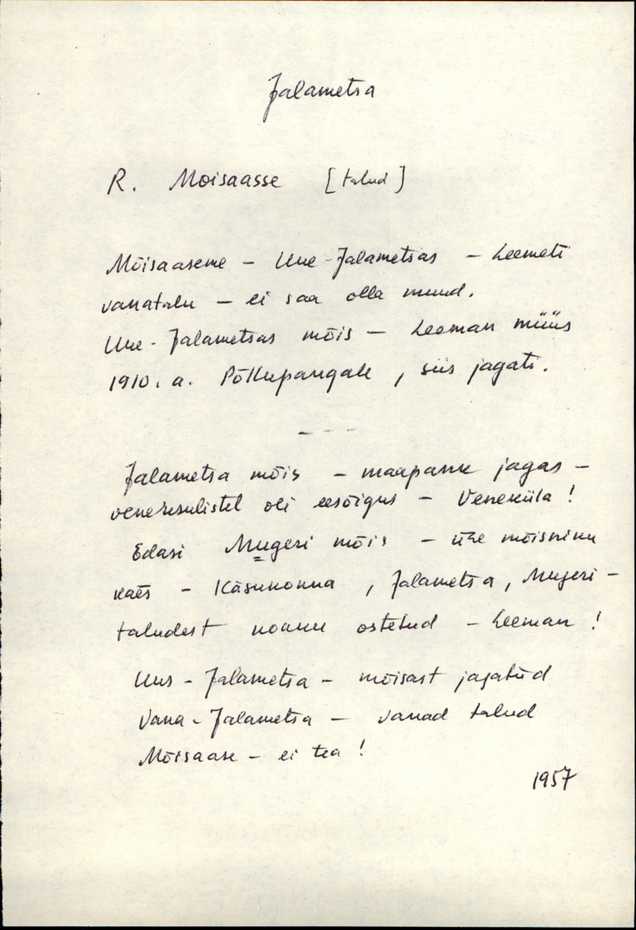 Jalametsa
R. Moisaasse [talud]
Mõisaaseme - Uue-Jalametsas - Leemeti
vanatalu - ei saa olla muud.
Uue-Jalametsas mõis - Leeman müüs
1910. a. Põllupangale, siis jagati.
- - - -
Jalametsa mõis - maapank jagas -
veneusulistel oli eesõigus - Veneküla!
Edasi Mugeri mõis - ühe mõisniku
käes - Käsukonna, Jalametsa, Mugeri -
taludest kokku ostetud - Leeman!
Uus-Jalametsa - mõisast jagatud
Vana-Jalametsa - vanad talud
Mõisaase - ei tea!
1957